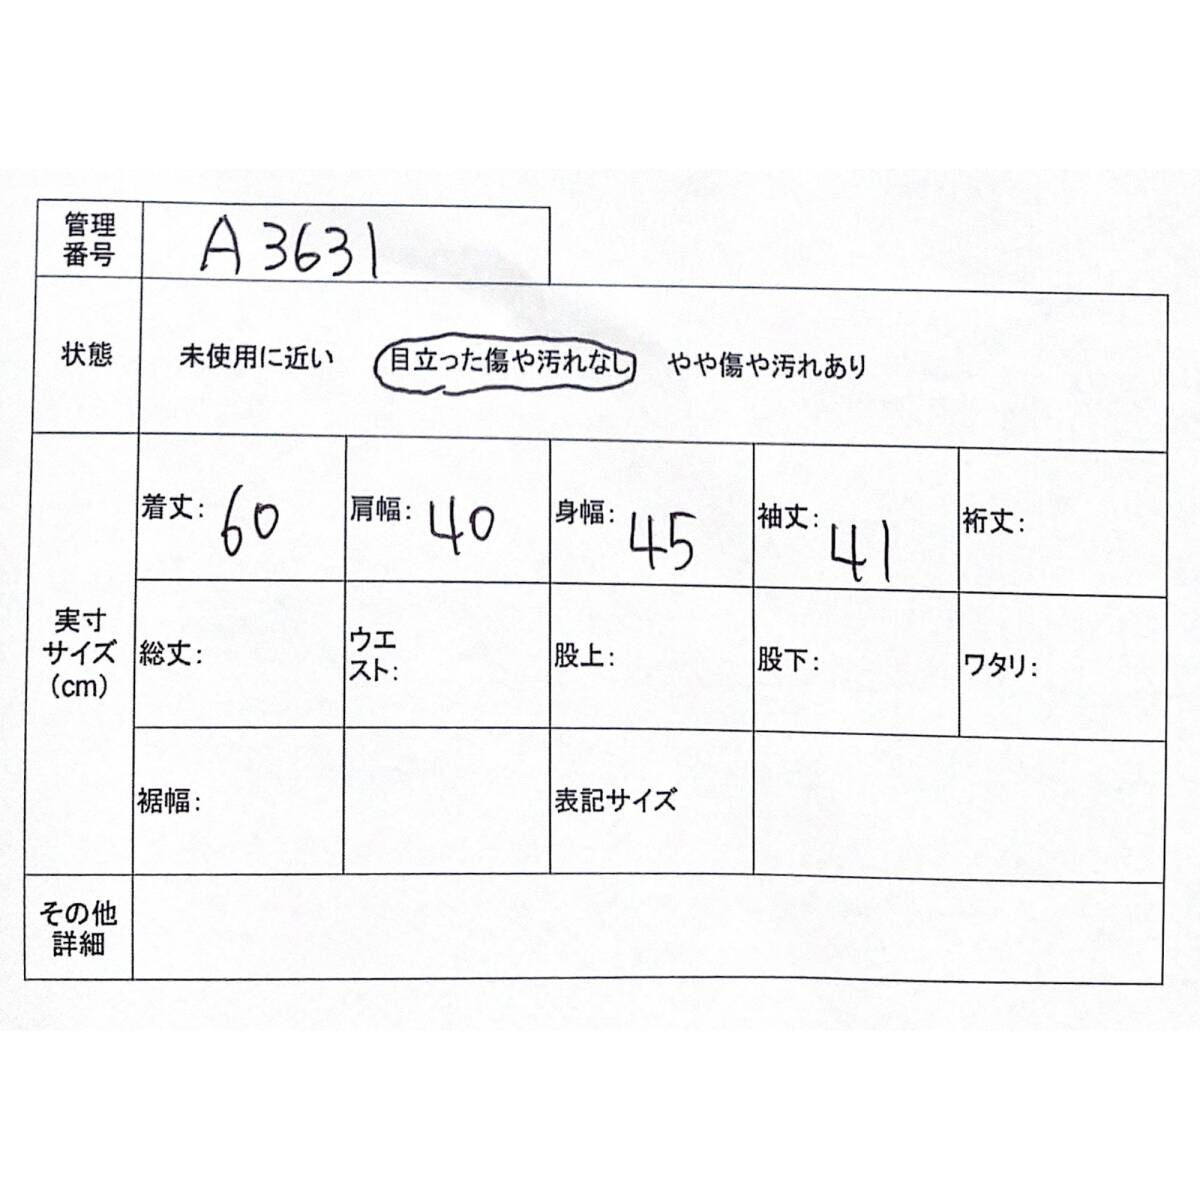 管理
番号
A3631
状態
未使用に近い 目立った傷や汚れなし やや傷や汚れあり
実寸
サイズ
(cm)
着丈: 60
肩幅: 40
身幅: 45
袖丈: 41
裄丈:
総丈:
ウエ
スト:
股上:
股下:
ワタリ:
裾幅:
表記サイズ
その他
詳細